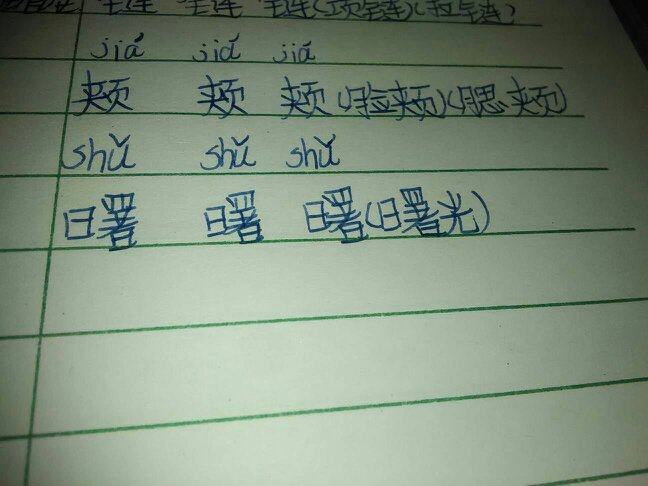 链 链 链(项链)(拉链)
jiá jiá jiá
颊 颊 颊(脸颊)(腮颊)
shǔ shǔ shǔ
曙 曙 曙(曙光)